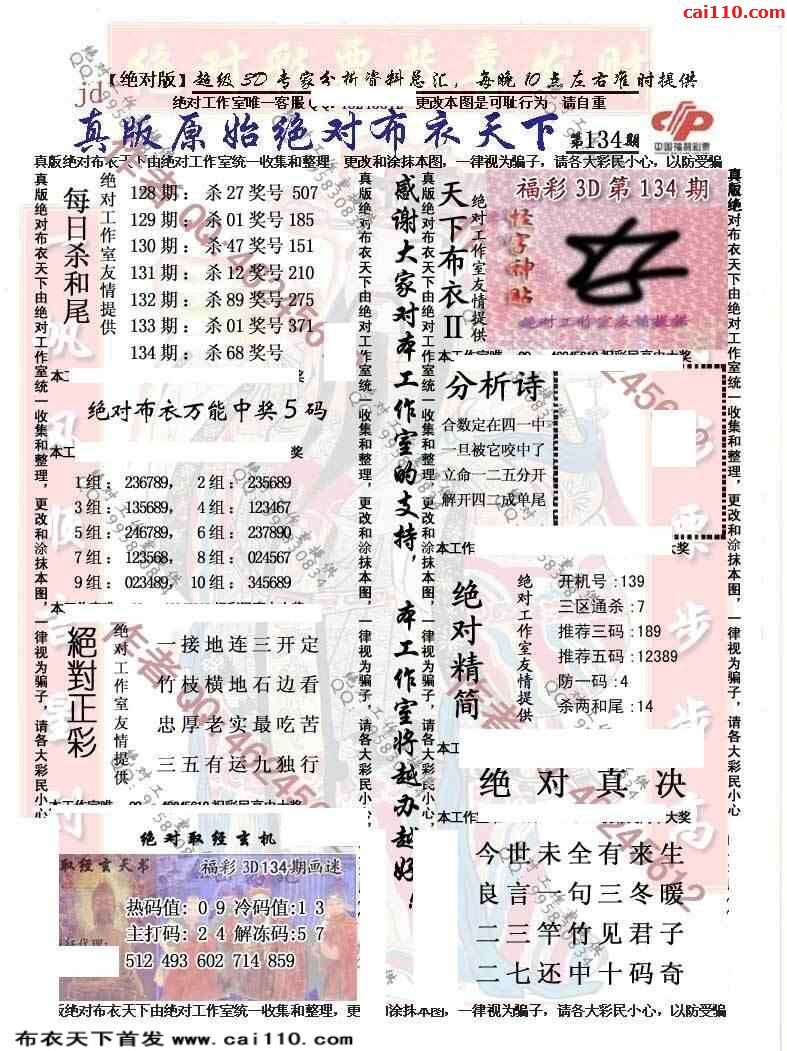 cai110.com
【绝对版】超级3D专家分析资料总汇，每晚10点左右准时提供
jd
绝对工作室唯一客服 更改本图是可耻行为 请自重
真版原始绝对布衣天下 第134期
中国福利彩票
真版绝对布衣天下由绝对工作室统一收集和整理，更改和涂抹本图，一律视为骗子，请各大彩民小心，以防受骗
每日杀和尾
绝对工作室友情提供
128期：杀27奖号 507
129期：杀01奖号 185
130期：杀47奖号 151
131期：杀12奖号 210
132期：杀89奖号 275
133期：杀01奖号 371
134期：杀68奖号
绝对布衣万能中奖5码
1组：236789， 2组：235689
3组：135689， 4组：123467
5组：246789， 6组：237890
7组：123568， 8组：024567
9组：023489， 10组：345689
絕對正彩
绝对工作室友情提供
一接地连三开定
竹枝横地石边看
忠厚老实最吃苦
三五有运九独行
绝对取经玄机
取经玄天书 福彩3D134期画迷
热码值: 0 9 冷码值:1 3
主打码: 2 4 解冻码:5 7
512 493 602 714 859
感谢大家对本工作室的支持，本工作室将越办越好！
天下布衣II
绝对工作室友情提供
福彩3D第134期
怪字神贴
绝对工作室友情提供
分析诗
合数定在四一中
一旦被它咬中了
立命一二五分开
解开四二成单尾
绝对精简
绝对工作室友情提供
开机号：139
三区通杀：7
推荐三码：189
推荐五码：12389
防一码：4
杀两和尾：14
绝对真决
今世未全有来生
良言一句三冬暖
二三竿竹见君子
二七还中十码奇
真版绝对布衣天下由绝对工作室统一收集和整理，更改和涂抹本图，一律视为骗子，请各大彩民小心
版绝对布衣天下由绝对工作室统一收集和整理，更 和涂抹本图，一律视为骗子，请各大彩民小心，以防受骗
布衣天下首发 www.cai110.com